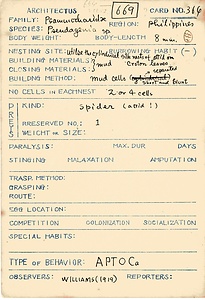 ARCHITECTUS 669 CARD NO. 364
FAMILY: Psammocharidae REGION: Philippines
SPECIES: Pseudagenia sp
BODY WEIGHT: BODY-LENGTH 8 mm.
NESTING SITE: utilize the cylindrical BURROWING HABIT (-)
BUILDING MATERIALS } mud Croton leaves
CLOSING MATERIALS } mud
BUILDING METHOD: mud cells short and blunt
NO. CELLS IN EACH NEST 2 or 4 cells
PREY KIND: spider (adld!)
PRESERVED NO.: 1
WEIGHT OR SIZE:
PARALYSIS: MAX. DUR DAYS
STINGING MALAXATION AMPUTATION
TRASP. METHOD:
GRASPING:
ROUTE:
EGG LOCATION:
COMPETITION COLONIZATION SOCIALIZATION
SPECIAL HABITS:
TYPE OF BEHAVIOR: APTOCa
OBSERVERS: WILLIAMS (1919) REPORTERS: